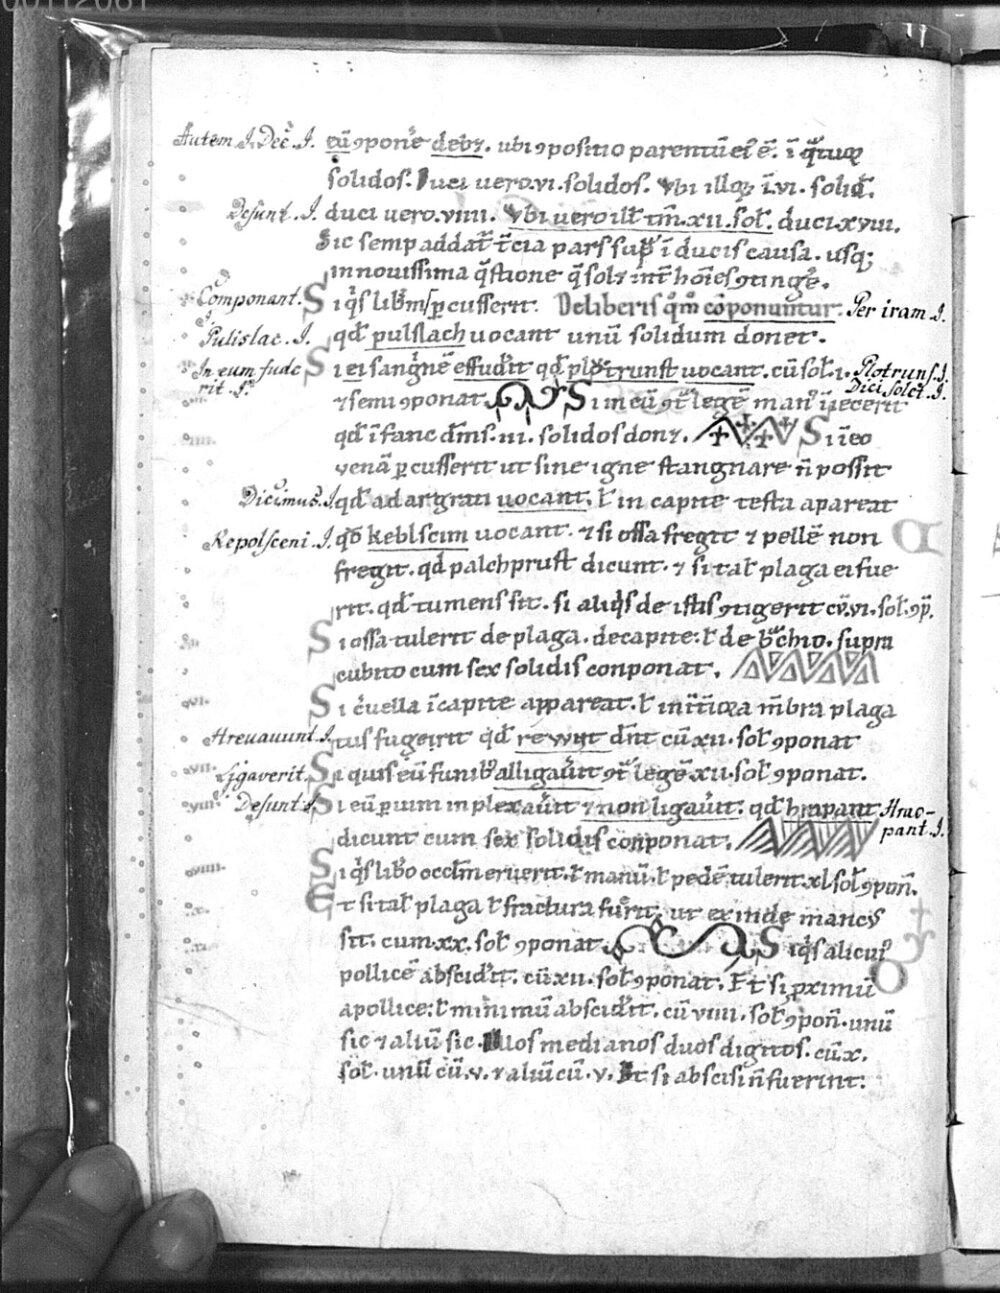 00112081
Autem J. Dec̄. J. cū ꝯponere debꝫ. ubi ꝯpositio parentū ei ē. ī q̄tuor
solidos. Duci uero .vi. solidos. Vbi illoꝝ ī .vi. solid̄.
Desunt. J. duci uero .viiii. Vbi uero ill̄ tm̄ .xii. sol̄. duci .xviii.
Sic semp addat̄ t̄cia pars sup̄ ī ducis causa. usq;
in nouissima q̄stione q̄ solꝫ int̄ hōies ꝯtinḡe.
Componant. J. Si q̄s lib̄m ꝑcusserit. De liberis q̄m cōponuntur. Per iram J.
Pulislac. J. qd̄ pulslach uocant unū solidum donet.
In eum fude Si ei sanḡnē effud̄it qd̄ plotrunst uocant. cū sol̄ .i. Plotruns. J.
rit. J. ⁊ semi ꝯponat. Si in eū ꝯt̄ legē man̄ iniecerit Dici solet. J.
qd̄ īfanc d̄ms .iii. solidos donꝫ. Si in eo
venā ꝑcusserit ut sine igne stangnare n̄ possit
Dicimus. J. qd̄ adargrati uocant. l̄ in capite testa apareat
Repolsceni. J. qd̄ keblscim uocant. ⁊ si ossa fregit ⁊ pellē non
fregit. qd̄ palchprust dicunt. ⁊ si tal̄ plaga ei fue
rit. qd̄ tumens sit. si aliq̄s de istis ꝯtigerit cū .vi. sol̄. ꝯp̄.
Si ossa tulerit de plaga. de capite: l̄ de b̄chio. supra
cubito cum sex solidis conponat.
Si c̄uella ī capite appareat. l̄ in īt̄iora m̄bra plaga
Hrevavunt. J. tus fugeirit qd̄ rewnt d̄nt cū .xii. sol̄ ꝯponat
.vii. Ligaverit. J. Si quis eū funib' alligau̅it ꝯt̄ legē .xii. sol̄ ꝯponat.
.viii. Desunt J. Si eū ꝑ uim inplexau̅it ⁊ non ligau̅it. qd̄ hrapant Hrao-
dicunt cum sex solidis conponat. pant. J.
.viiii. Si q̄s lib̄o occlm̄ eruerit. l̄ manū. l̄ pedē tulerit .xl. sol̄ ꝯpon̄.
.x. Et si tal̄ plaga l̄ fractura fu̅it, ut exinde mancus
sit. cum .xx. sol̄ ꝯponat. Si q̄s alicui'
pollicē abscid̄it. cū .xii. sol̄ ꝯponat. Et si ꝓximū
a pollice: l̄ minimū abscid̄it. cū viiii. sol̄ ꝯpon̄. unū
sic ⁊ aliū sic. Illos medianos duos digitos. cū .x.
sol̄. unū cū .v. ⁊ aliū cū .v. Et si abscisi n̄ fuerint: